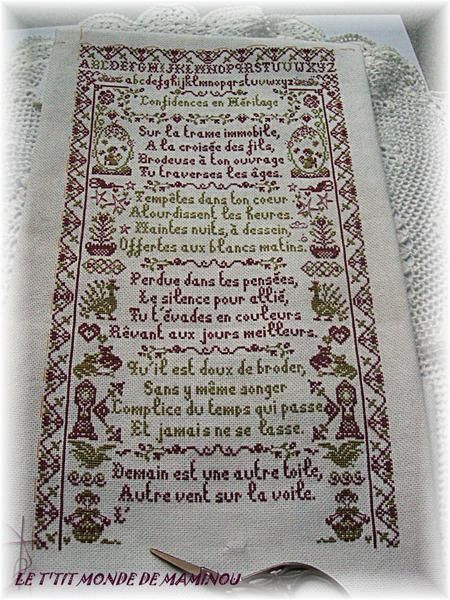 ABCDEFGHIJKLMNOPQRSTUVWXYZ
abcdefghijklmnopqrstuvwxyz
Confidences en Héritage
Sur la trame immobile,
A la croisée des fils,
Brodeuse à ton ouvrage
Tu traverses les âges.
Tempêtes dans ton coeur
Alourdissent les heures.
Maintes nuits, à dessein,
Offertes aux blancs matins.
Perdue dans tes pensées,
Le silence pour allié,
Tu t'évades en couleurs
Rêvant aux jours meilleurs.
Qu'il est doux de broder,
Sans y même songer
Complice du temps qui passe
Et jamais ne se lasse.
Demain est une autre toile,
Autre vent sur la voile.
L'
LE T'TIT MONDE DE MAMINOU